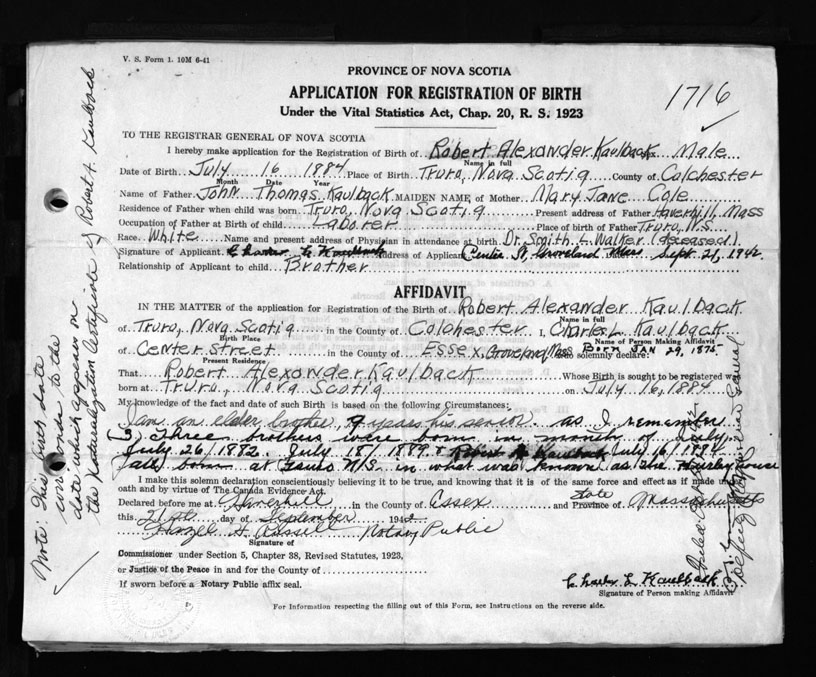 V. S. Form 1. 10M 6-41
PROVINCE OF NOVA SCOTIA
APPLICATION FOR REGISTRATION OF BIRTH
Under the Vital Statistics Act, Chap. 20, R. S. 1923
1716
TO THE REGISTRAR GENERAL OF NOVA SCOTIA
I hereby make application for the Registration of Birth of Robert Alexander Kaulback Sex Male
Name in full
Date of Birth July 16 1884 Place of Birth Truro, Nova Scotia County of Colchester
Month Date Year
Name of Father John Thomas Kaulback MAIDEN NAME of Mother Mary Jane Cole
Residence of Father when child was born Truro, Nova Scotia Present address of Father Haverhill, Mass
Occupation of Father at Birth of child Laborer Place of birth of Father Truro, N.S.
Race White Name and present address of Physician in attendance at birth Dr. Smith L. Walker (deceased)
Signature of Applicant Charles L Kaulback Address of Applicant Center St, Groveland Mass Sept. 21, 1942
Relationship of Applicant to child Brother
AFFIDAVIT
IN THE MATTER of the application for Registration of the Birth of Robert Alexander Kaulback
Name in full
of Truro, Nova Scotia in the County of Colchester I, Charles L. Kaulback
Birth Place Name of Person Making Affidavit
of Center Street in the County of Essex, Groveland, Mass Born JAN 29, 1875 solemnly declare:
Present Residence
That Robert Alexander Kaulback Whose Birth is sought to be registered was
born at Truro, Nova Scotia on July 16, 1884
My knowledge of the fact and date of such Birth is based on the following Circumstances:
I am an elder brother 9 years his senior. as I remember
3 Three brothers were born in month of July
July 26/1882. July 18/1889 & Robert A Kaulback July 16/1884
all born at Truro N/S in what was known as the house
I make this solemn declaration conscientiously believing it to be true, and knowing that it is of the same force and effect as if made under
oath and by virtue of The Canada Evidence Act.
Declared before me at Haverhill in the County of Essex and Province of State Massachusetts
this 21st day of September 1942
Hazel H. Notary Public
Signature of
Commissioner under Section 5, Chapter 38, Revised Statutes, 1923,
or Justice of the Peace in and for the County of
If sworn before a Notary Public affix seal.
Charles L Kaulback
Signature of Person making Affidavit
For Information respecting the filling out of this Form, see Instructions on the reverse side.
Note: This birth date
corresponds to the
date which appears on
the Naturalization Certificate of Robert A. Kaulback
Deputy Registrar General